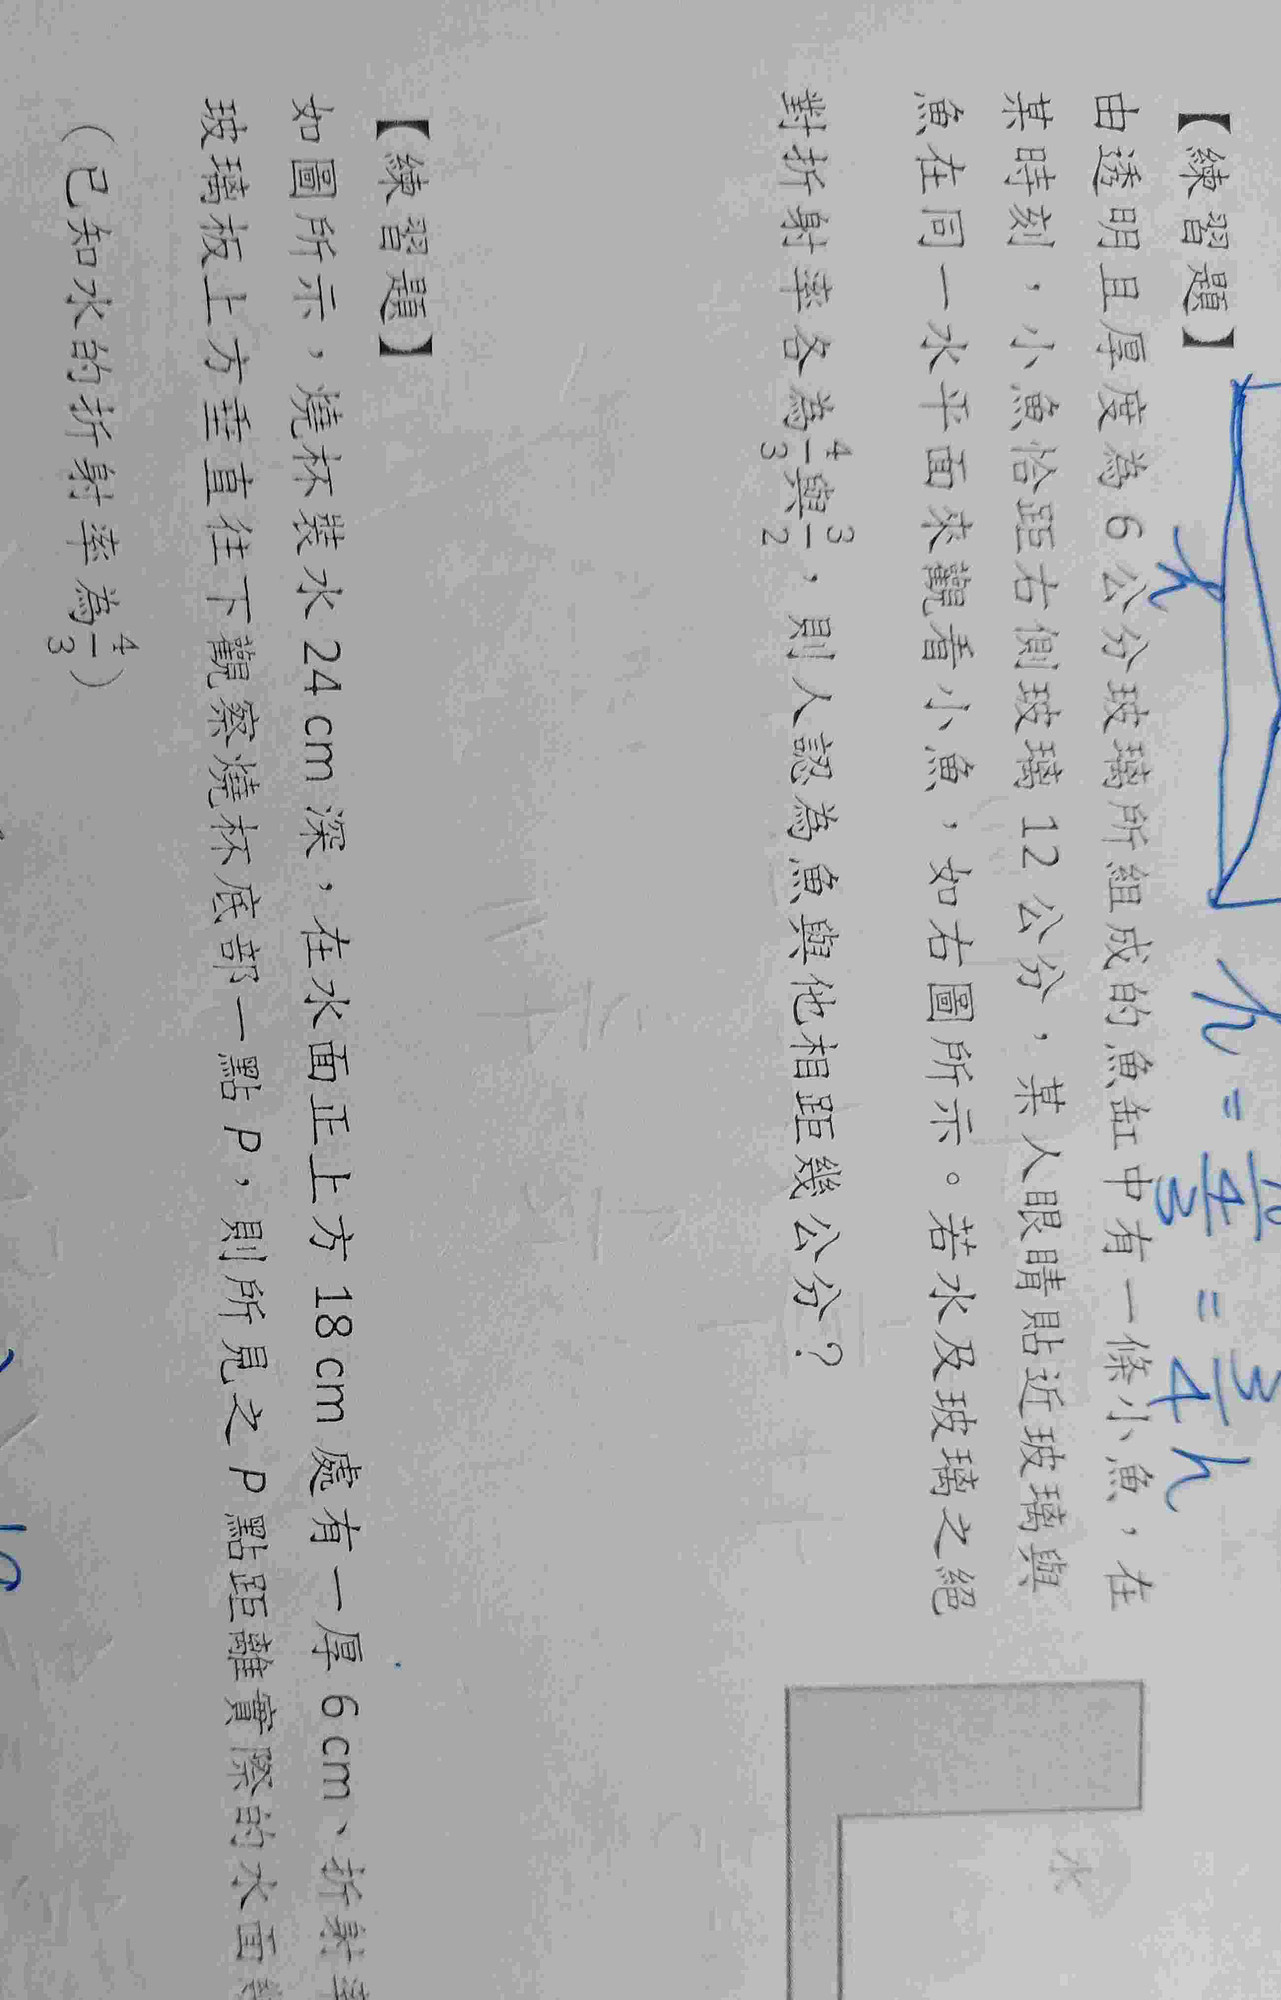 【練習題】
由透明且厚度為 6 公分玻璃所組成的魚缸中有一條小魚，在
某時刻，小魚恰距右側玻璃 12 公分，某人眼睛貼近玻璃與
魚在同一水平面來觀看小魚，如右圖所示。若水及玻璃之絕
對折射率各為 4/3 與 3/2，則人認為魚與他相距幾公分？
水
h = = 3/4 h
【練習題】
如圖所示，燒杯裝水 24 cm 深，在水面正上方 18 cm 處有一厚 6 cm、折射
玻璃板上方垂直往下觀察燒杯底部一點 P，則所見之 P 點距離實際的水面
（已知水的折射率為 4/3）